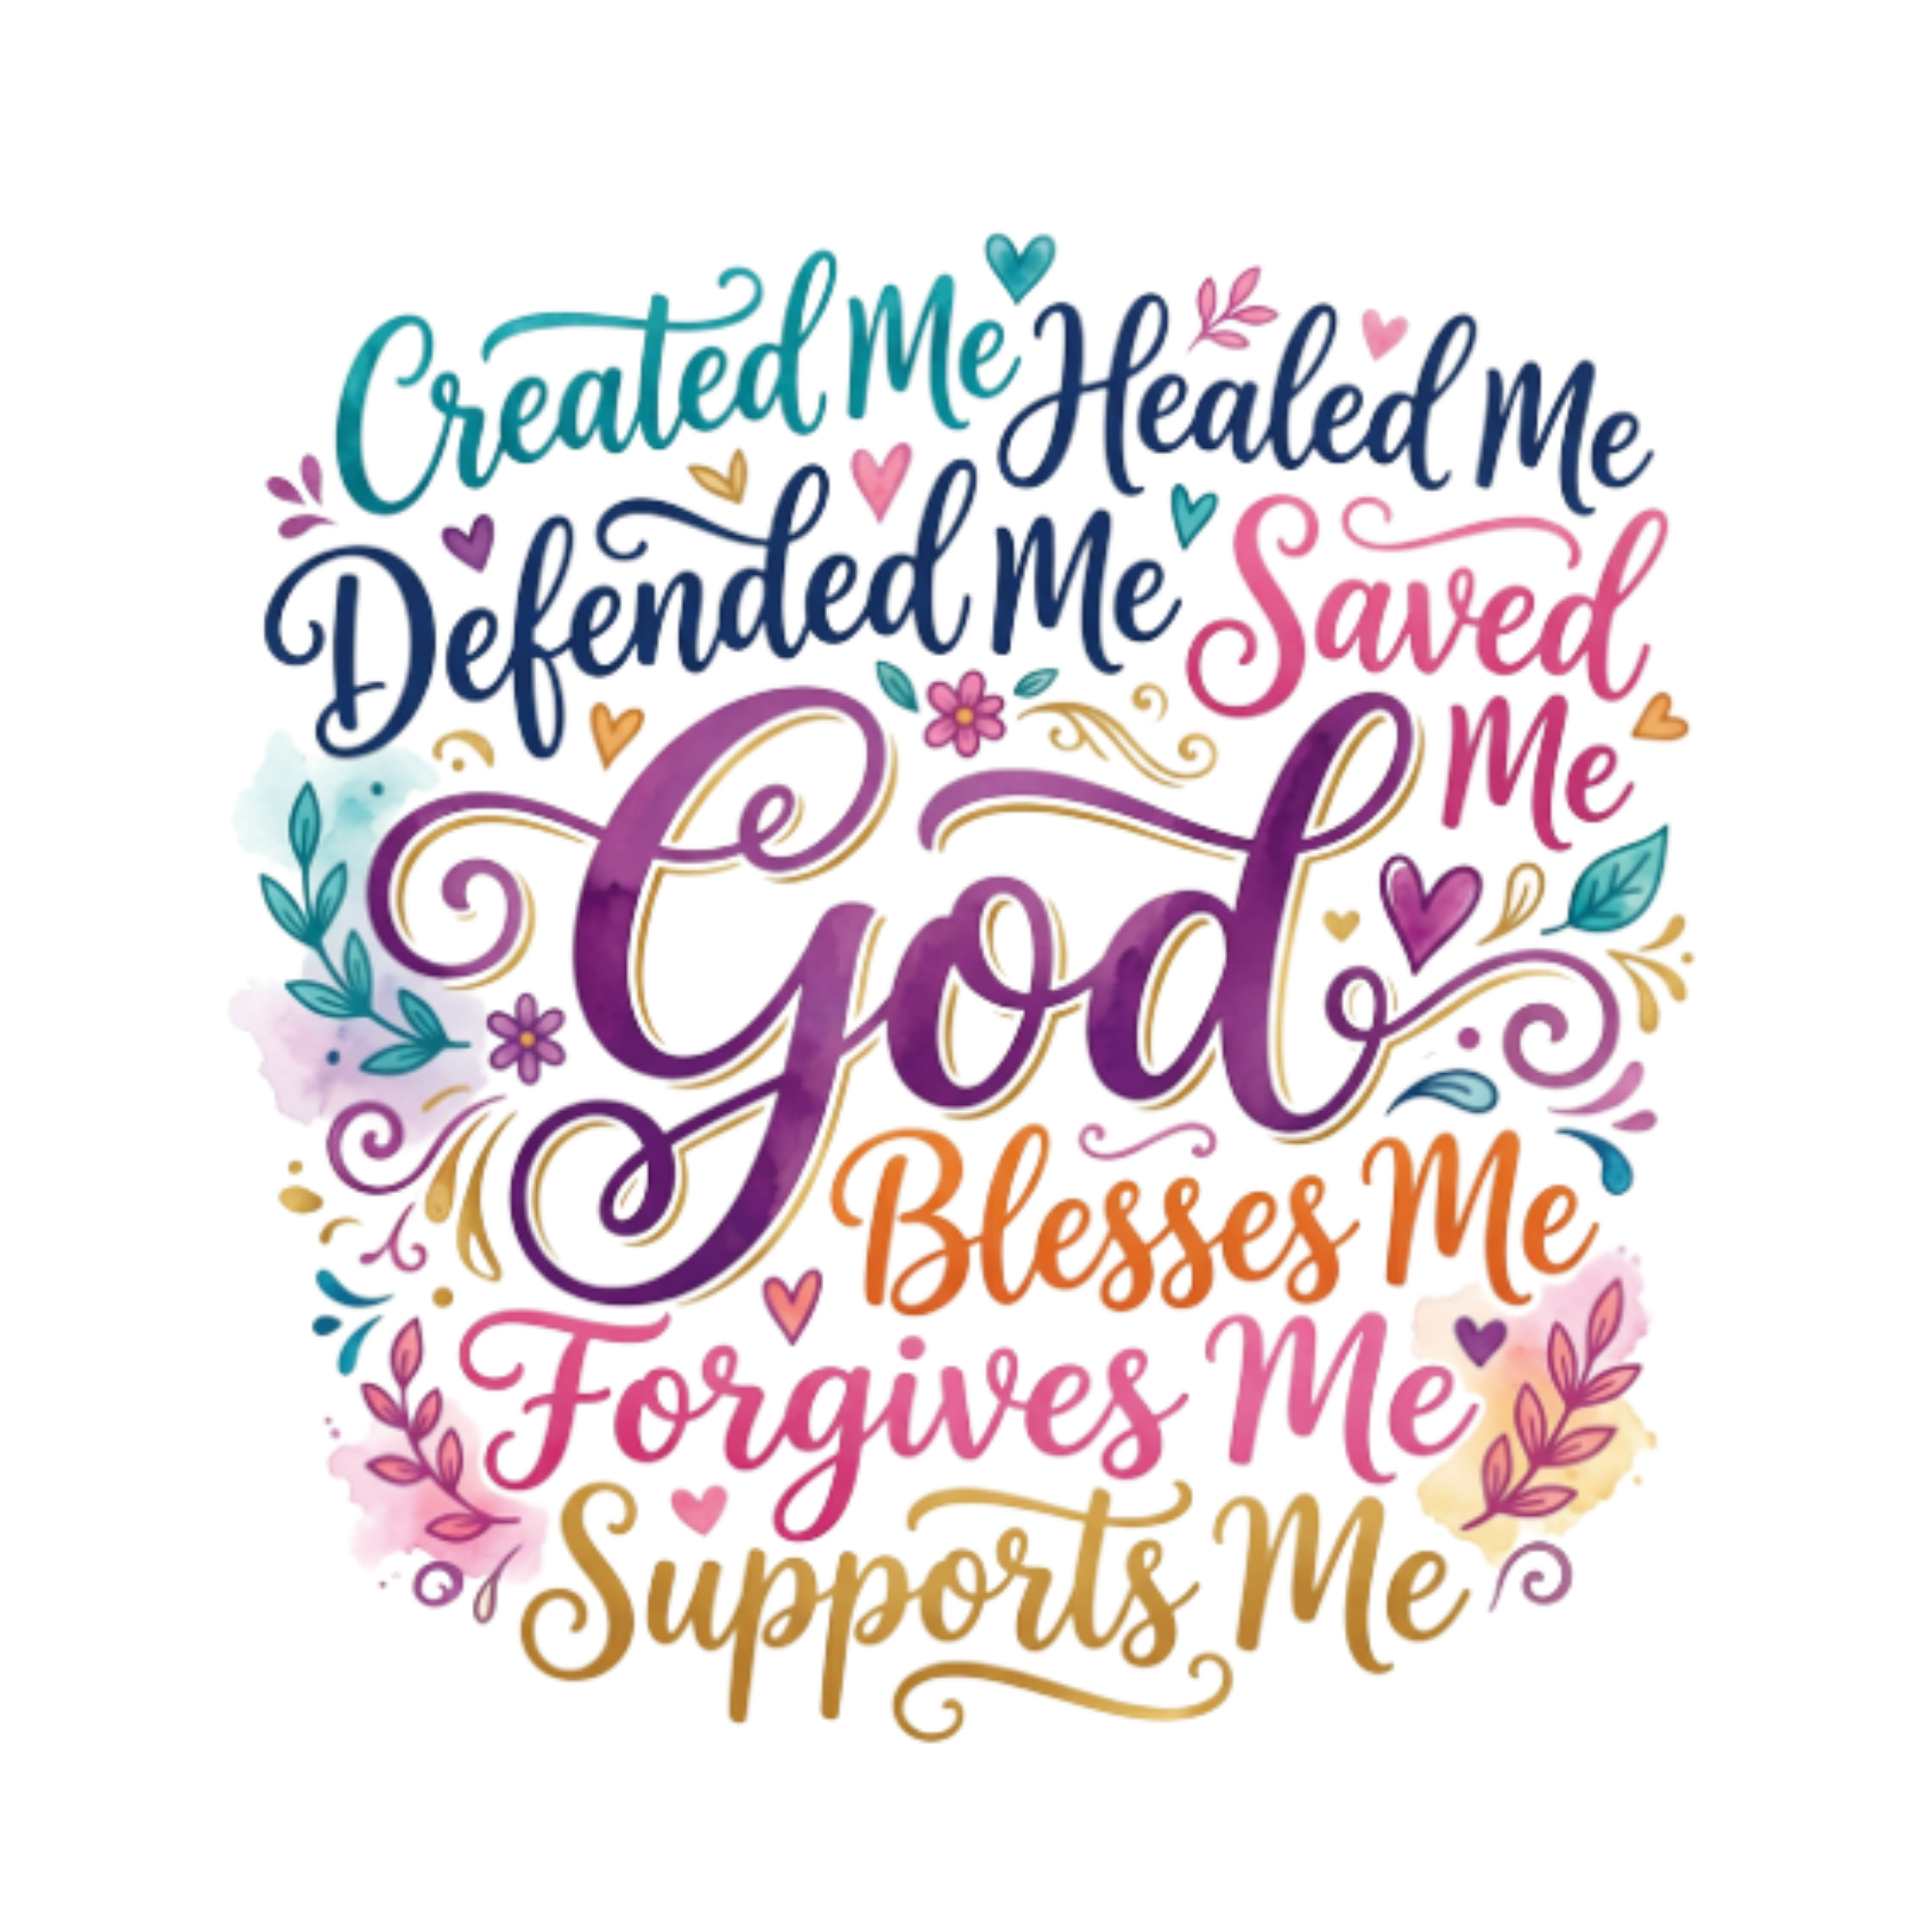 Created Me Healed Me
Defended Me Saved
Me
God
Blesses Me
Forgives Me
Supports Me